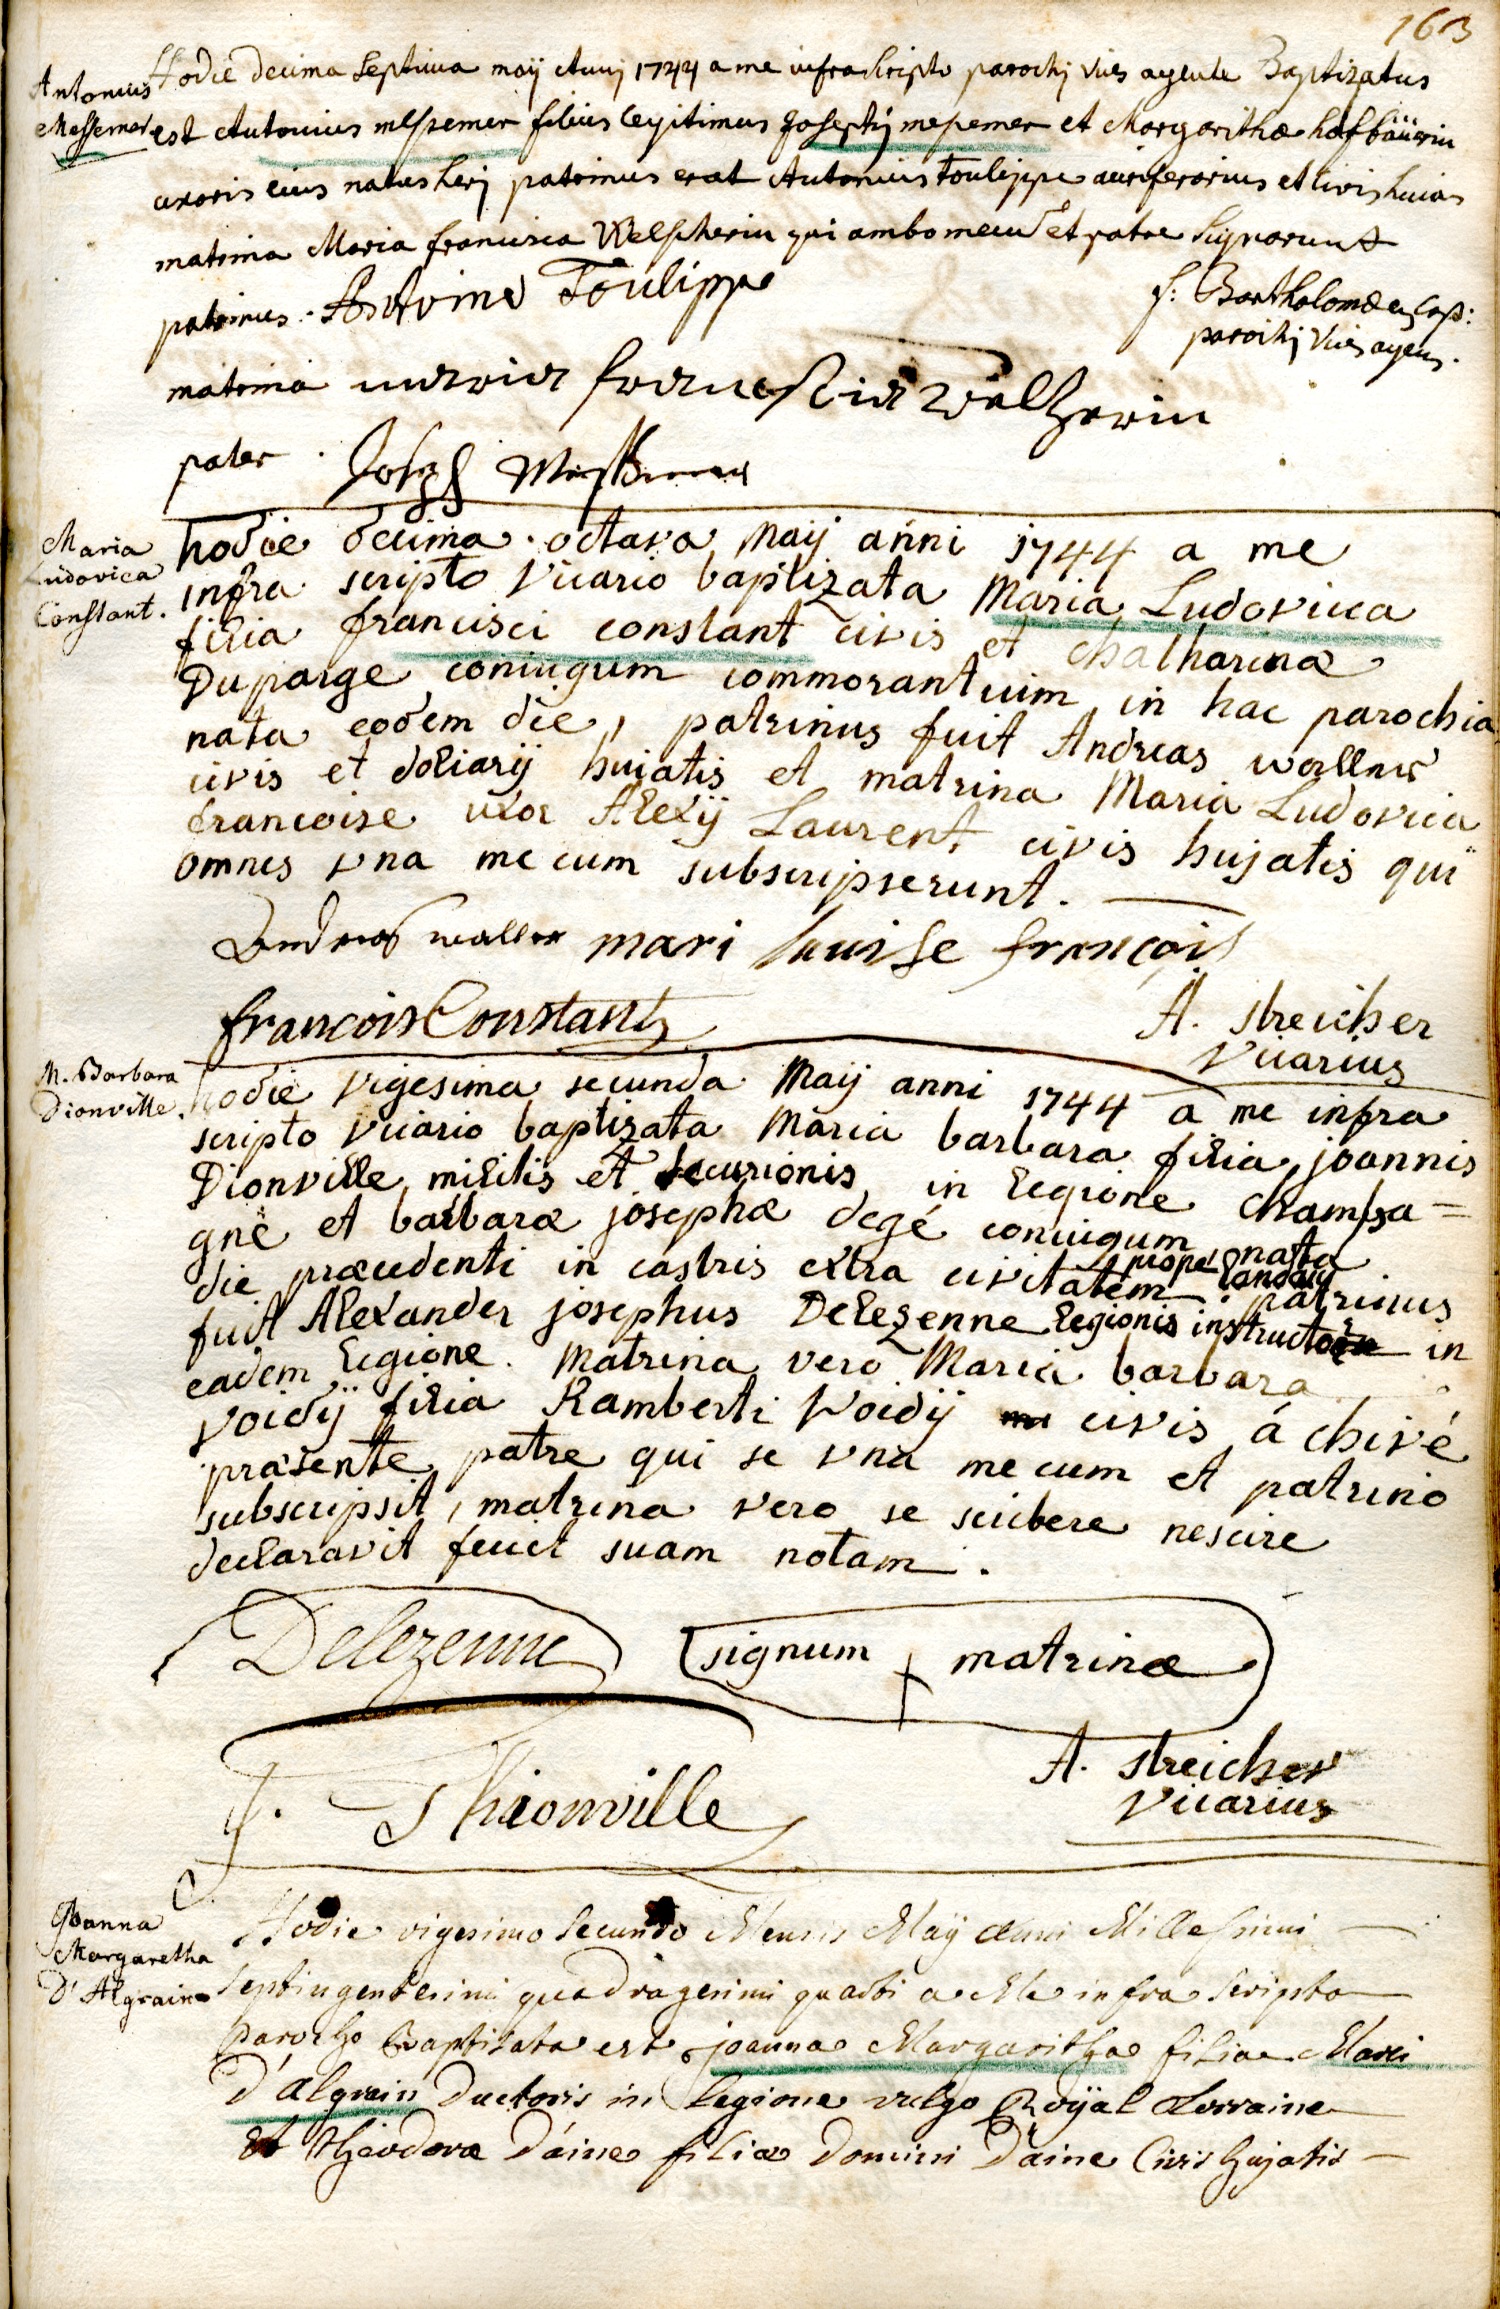 163
Antonius
Messemer
Hodie decima septima maij Anni 1744 a me infra scripto parochi vices agente Baptizatus
est Antonius messemer filius legitimus Josephi messemer et Margarithæ hofbäüerin
uxoris eius natus heri patrinus erat Antonius toulippe aurifexarius et civis huias
matrina Maria francisca Welscherin qui ambo mecum et patre signarunt
patrinus. Antoine Toulippe
f: Bartholomæus Cap:
parochi vices agens.
matrina maria francisca welscherin
pater. Joseph
Maria
Ludovica
Constant.
hodie decima octava Maij anni 1744 a me
infra scripto vicario baptizata Maria Ludovica
filia francisci constant civis et chatharinæ
Duparge coniugum commorantium in hac parochia
nata eodem die, patrinus fuit Andreas waller
civis et doliarij huiatis et matrina Maria Ludovica
francoise uxor Alexij Laurent civis hujatis qui
omnes una mecum subscripserunt.
Andreas waller mari luuisse françois
francois Constant
A. streicher
vicarius
M. Barbara
Dionville.
hodie vigesima secunda Maij anni 1744 a me infra
scripto vicario baptizata Maria barbara filia joannis
Dionville militis et decurionis in legione champa=
gne et barbaræ josephæ degé coniugum nata
die præcedenti in castris extra civitatem prope landau patrinus
fuit Alexander josephus Delezenne legionis instructor in
eadem legione. Matrina vero Maria barbara
voidij filia Ramberti voidij civis á chivé
præsente patre qui se una mecum et patrino
subscripsit, matrina vero se scribere nescire
declaravit fecit suam notam.
Delezenne signum + matrinæ
J. Thionville
A. streicher
vicarius
Joanna
Margaretha
D'Algrain
Hodie vigesimo secundo Mensis Maÿ Anni Millesimi
septingentesimi quadragesimi quarti a Me infra scripto
parocho Baptisata est joanna Margaritha filia Marci
D'algrain Ductoris in Legione vulgo Roÿal Lorraine
et theodoræ Daine filiæ Domini Daine Civis hujatis